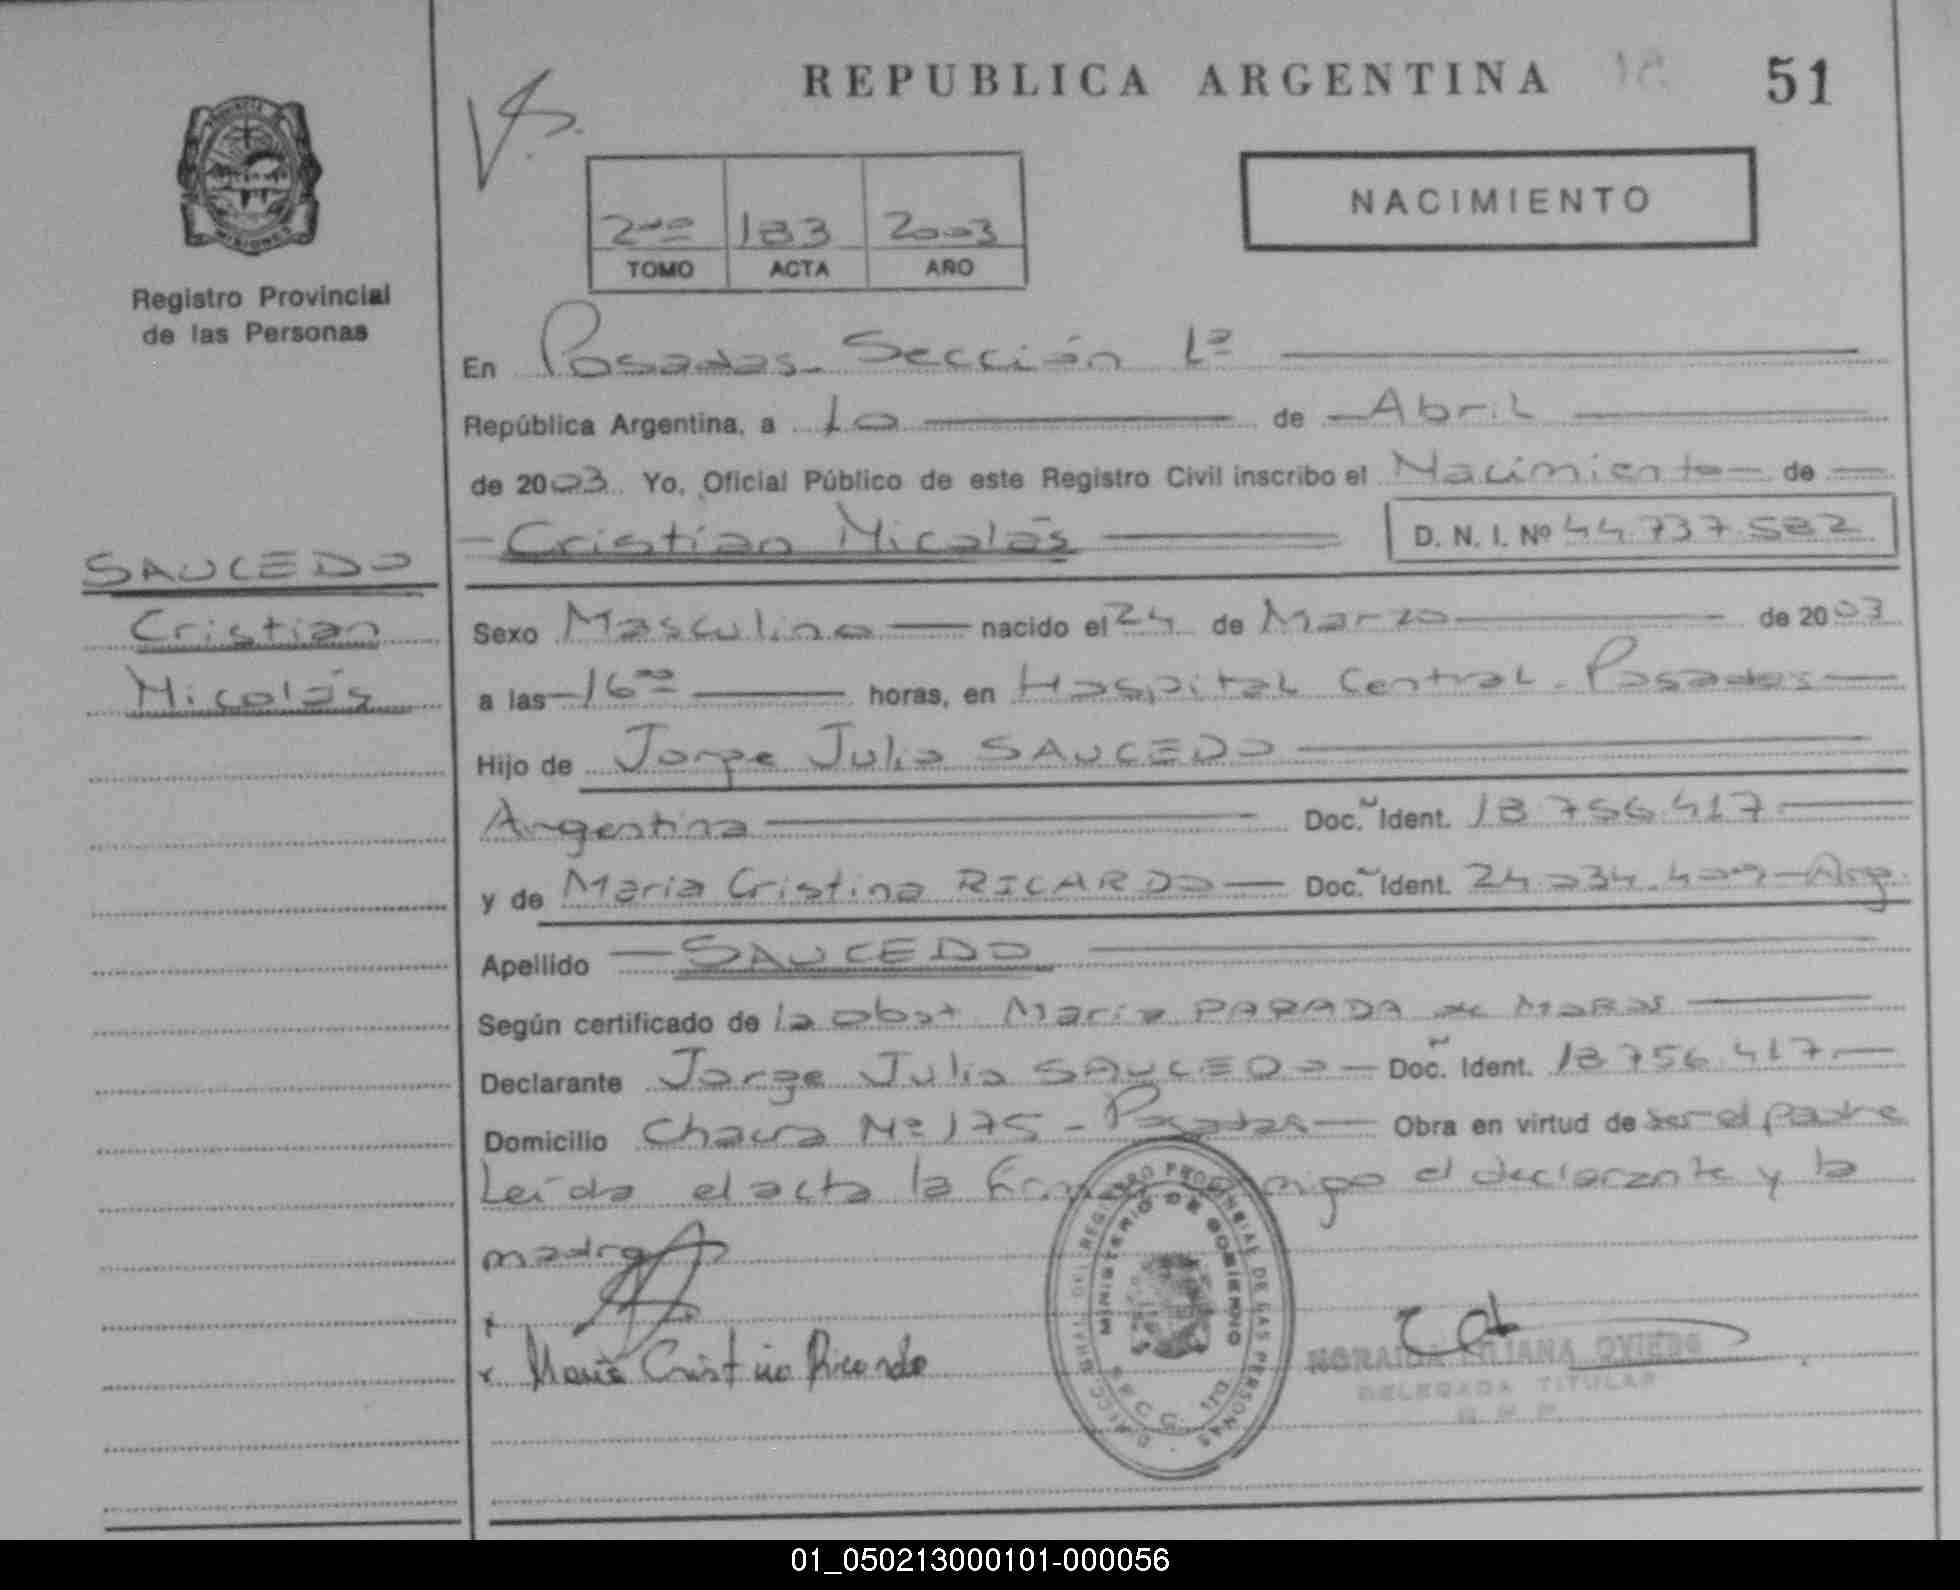 REPUBLICA ARGENTINA
51
PROVINCIA
MISIONES
Registro Provincial
de las Personas
NACIMIENTO
2do 183 2003
TOMO ACTA AÑO
En Posadas Sección 1ª
República Argentina, a 10 de Abril
de 2003 Yo, Oficial Público de este Registro Civil inscribo el Nacimiento de
Cristian Nicolás D. N. I. Nº 44.737.582
SAUCEDO
Cristian
Nicolás
Sexo Masculino nacido el 24 de Marzo de 2003
a las 16 horas, en Hospital Central - Posadas
Hijo de Jorge Julio SAUCEDO
Argentina Doc. Ident. 18.756.417
y de Maria Cristina RICARDO Doc. Ident. 24.034.409 - Arg.
Apellido SAUCEDO
Según certificado de la obst Maria PARADA de
Declarante Jorge Julio SAUCEDO Doc. Ident. 18.756.417
Domicilio Chacra Nº 175 - Posadas Obra en virtud de ser el padre
Leída el acta la conmigo el declarante y la
madre
x
x Maria Cristina Ricardo
DEL REGISTRO PROVINCIAL DE LAS PERSONAS
MINISTERIO DE GOBIERNO
LILIANA OVIEDO
DELEGADA TITULAR
01_050213000101-000056